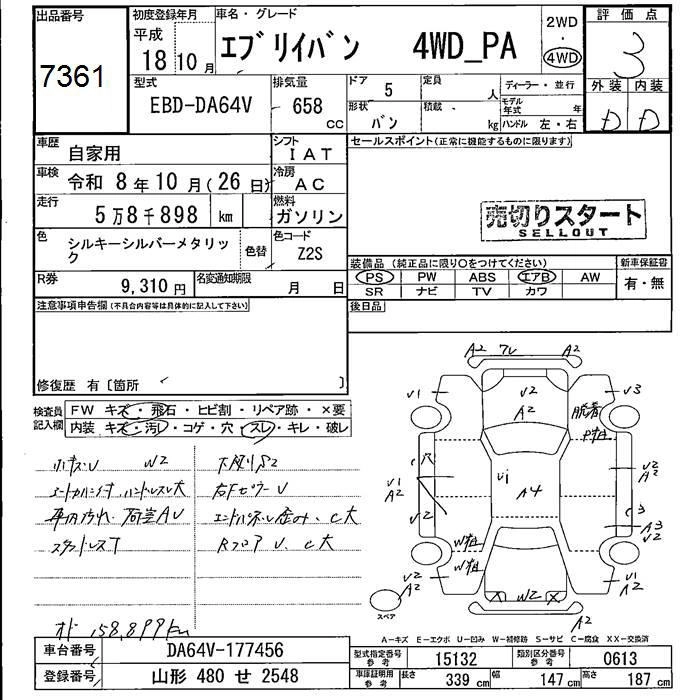 出品番号
7361
初度登録年月
平成
18年10月
車名・グレード
エブリイバン 4WD_PA
2WD
・
4WD
評価点
3
外装 内装
D D
型式
EBD-DA64V
排気量
658
cc
ドア 5
形状 バン
定員 人
積載 kg
ディーラー・並行
モデル年式 年
ハンドル 左・右
車歴 自家用
シフト IAT
車検 令和 8年10月(26日)
冷房 AC
走行 5万8千898 km
燃料 ガソリン
色 シルキーシルバーメタリック
色替
色コード Z2S
R券 9,310円
名変通知期限 月 日
セールスポイント(正常に機能するものに限ります)
売切りスタート
SELLOUT
装備品(純正品に限り○をつけてください)
新車保証書
PS PW ABS エアB AW
有・無
SR ナビ TV カワ
注意事項申告欄(不具合内容等は具体的に記入して下さい)
後日品
修復歴 有〔箇所 〕
検査員記入欄
FW キズ・飛石・ヒビ割・リペア跡・×要
内装 キズ・汚レ・コゲ・穴・スレ・キレ・破レ
小キズU W2
下廻りS2
ハンドルスレ大
右FピラーU
車内汚れ 荷室AU
C大
スタッドレスT
RフロアU、C大
オド 158,899km
A2 7U A2
U1
U2
A2
U3
脱着
P粗
C穴
U1
A2
U2
U1
A4
U2
A2
C3
A3
U2
W粗
W粗
U2
A2
W2
U1
A2
A2
スペア
A-キズ E-エクボ U-凹み W-補修跡 S-サビ C-腐食 XX-交換済
車台番号 DA64V-177456
登録番号 山形 480 せ 2548
型式指定番号 参考 15132
類別区分番号 参考 0613
車庫証明用 参考 長さ 339cm 幅 147cm 高さ 187cm